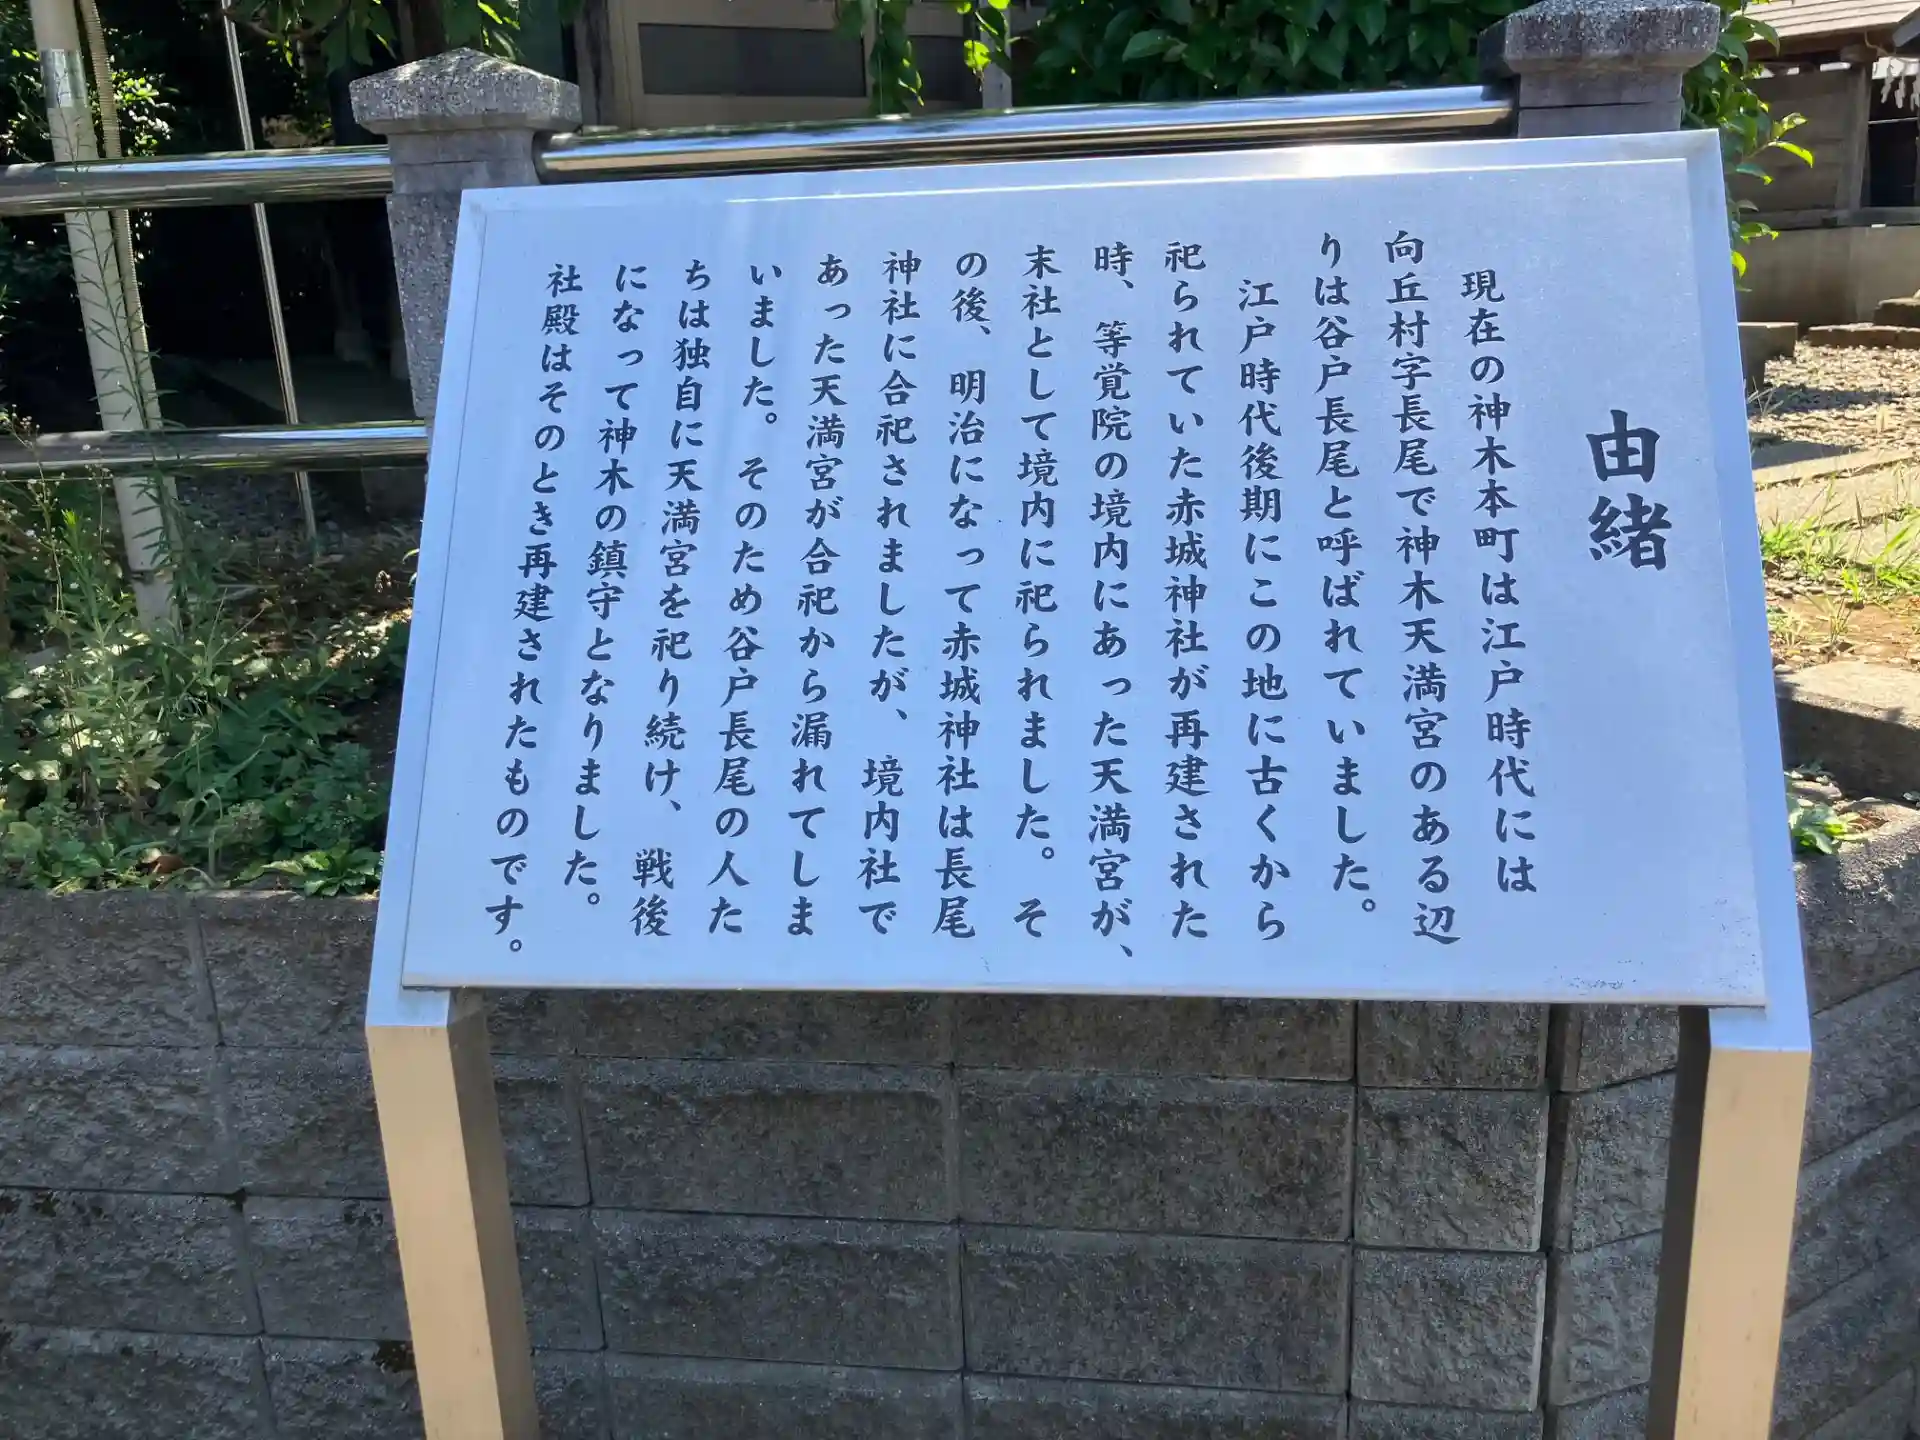 由緒
現在の神木本町は江戸時代には
向丘村字長尾で神木天満宮のある辺
りは谷戸長尾と呼ばれていました。
江戸時代後期にこの地に古くから
祀られていた赤城神社が再建された
時、等覚院の境内にあった天満宮が、
末社として境内に祀られました。そ
の後、明治になって赤城神社は長尾
神社に合祀されましたが、境内社で
あった天満宮が合祀から漏れてしま
いました。そのため谷戸長尾の人た
ちは独自に天満宮を祀り続け、戦後
になって神木の鎮守となりました。
社殿はそのとき再建されたものです。